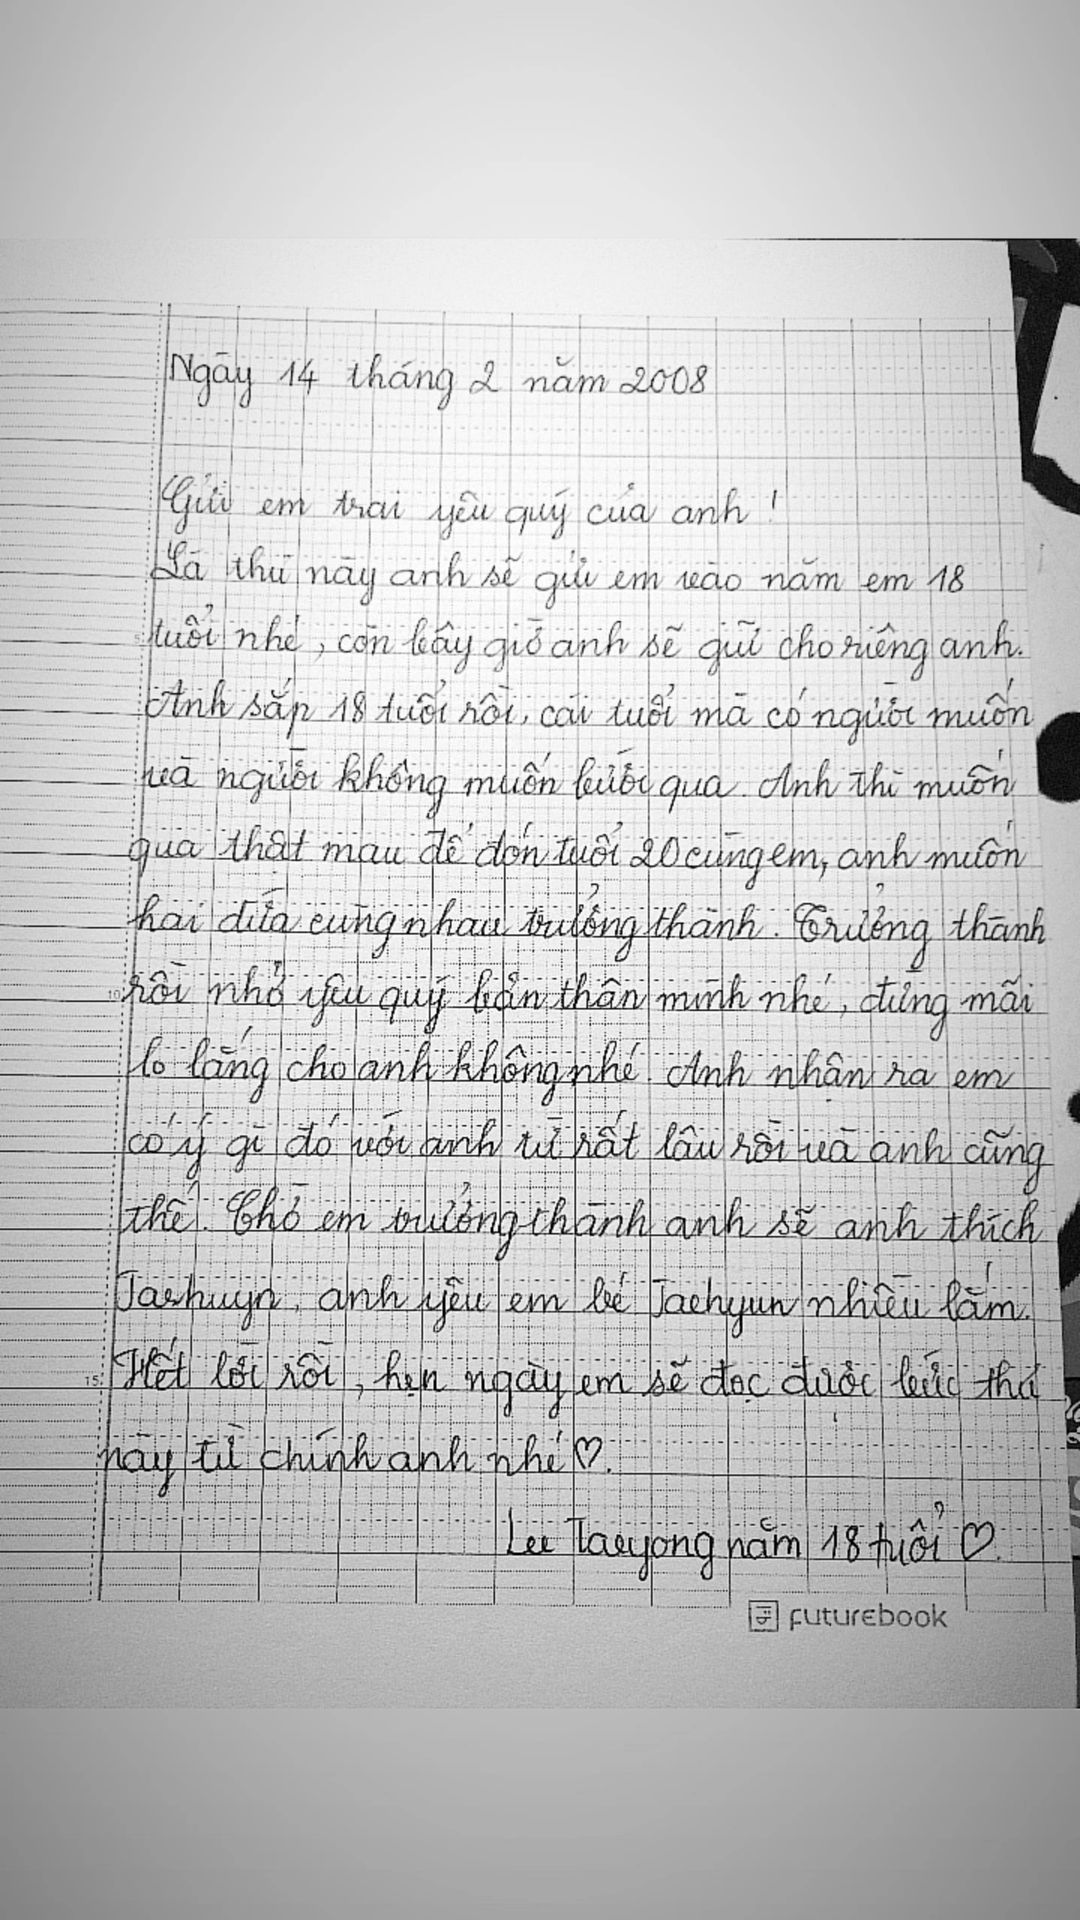 Ngày 14 tháng 2 năm 2008
Gửi em trai yêu quý của anh !
Lá thư này anh sẽ gửi em vào năm em 18
tuổi nhé, còn bây giờ anh sẽ giữ cho riêng anh.
Anh sắp 18 tuổi rồi, cái tuổi mà có người muốn
và người không muốn bước qua. Anh thì muốn
qua thật mau để đón tuổi 20 cùng em, anh muốn
hai đứa cùng nhau trưởng thành. Trưởng thành
10 rồi nhớ yêu quý bản thân mình nhé, đừng mãi
lo lắng cho anh không nhé. Anh nhận ra em
có ý gì đó với anh từ rất lâu rồi và anh cũng
thế. Chờ em trưởng thành anh sẽ anh thích
Jaehuyn, anh yêu em bé Jaehyun nhiều lắm.
15 Hết lời rồi, hẹn ngày em sẽ đọc được bức thư
này từ chính anh nhé♡.
Lee Taeyong năm 18 tuổi ♡.
FUTUREBOOK